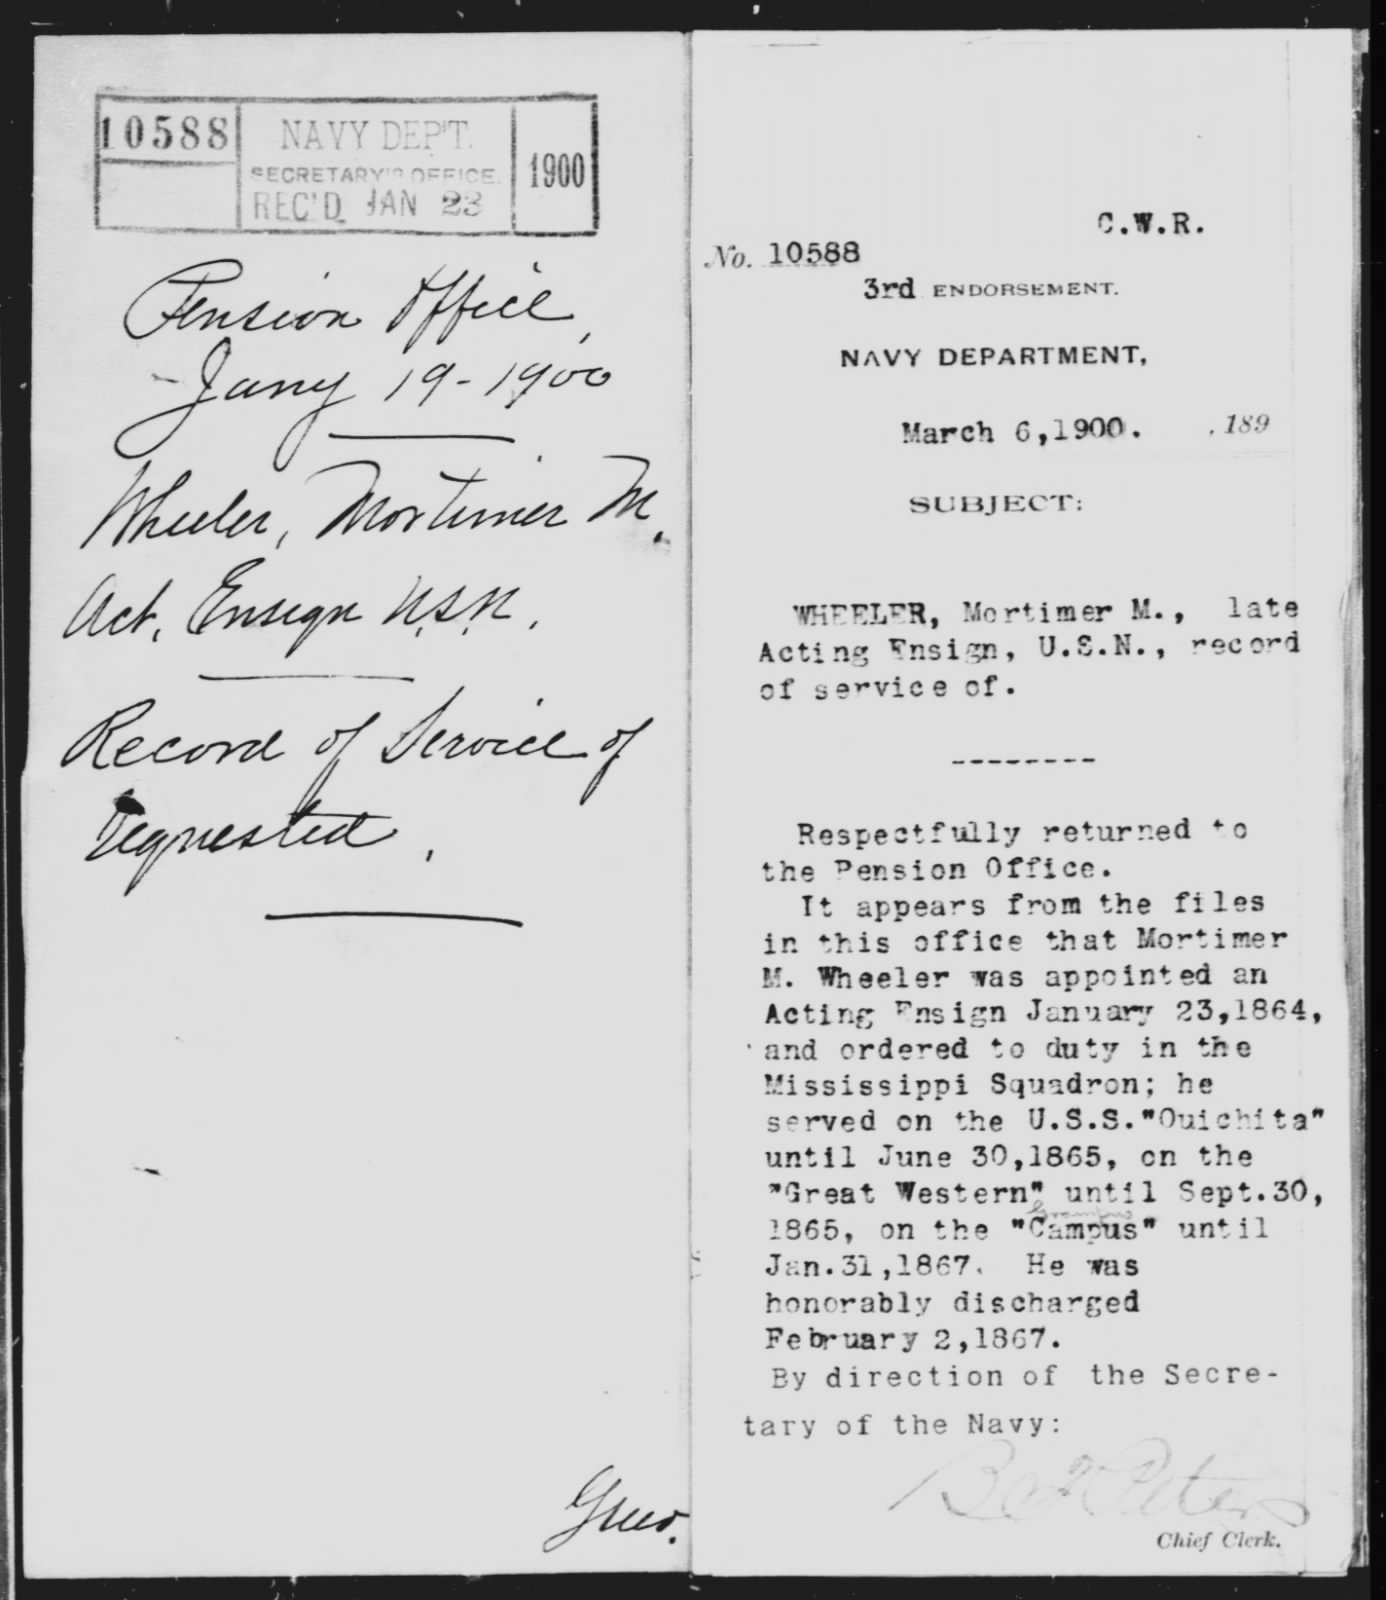 10588
NAVY DEP'T.
SECRETARY'S OFFICE.
REC'D JAN 23
1900
Pension Office,
Jany 19-1900
Wheeler, Mortimer M.
Act. Ensign U.S.N.
Record of Service of
requested.
C.W.R.
No. 10588
3rd ENDORSEMENT.
NAVY DEPARTMENT,
March 6,1900. , 189
SUBJECT:
WHEELER, Mortimer M., late
Acting Ensign, U.S.N., record
of service of.
--------
Respectfully returned to
the Pension Office.
It appears from the files
in this office that Mortimer
M. Wheeler was appointed an
Acting Ensign January 23,1864,
and ordered to duty in the
Mississippi Squadron; he
served on the U.S.S."Ouichita"
until June 30,1865, on the
"Great Western" until Sept.30,
Grampus
1865, on the "Campus" until
Jan.31,1867. He was
honorably discharged
February 2,1867.
By direction of the Secre-
tary of the Navy:
Peters
Chief Clerk.